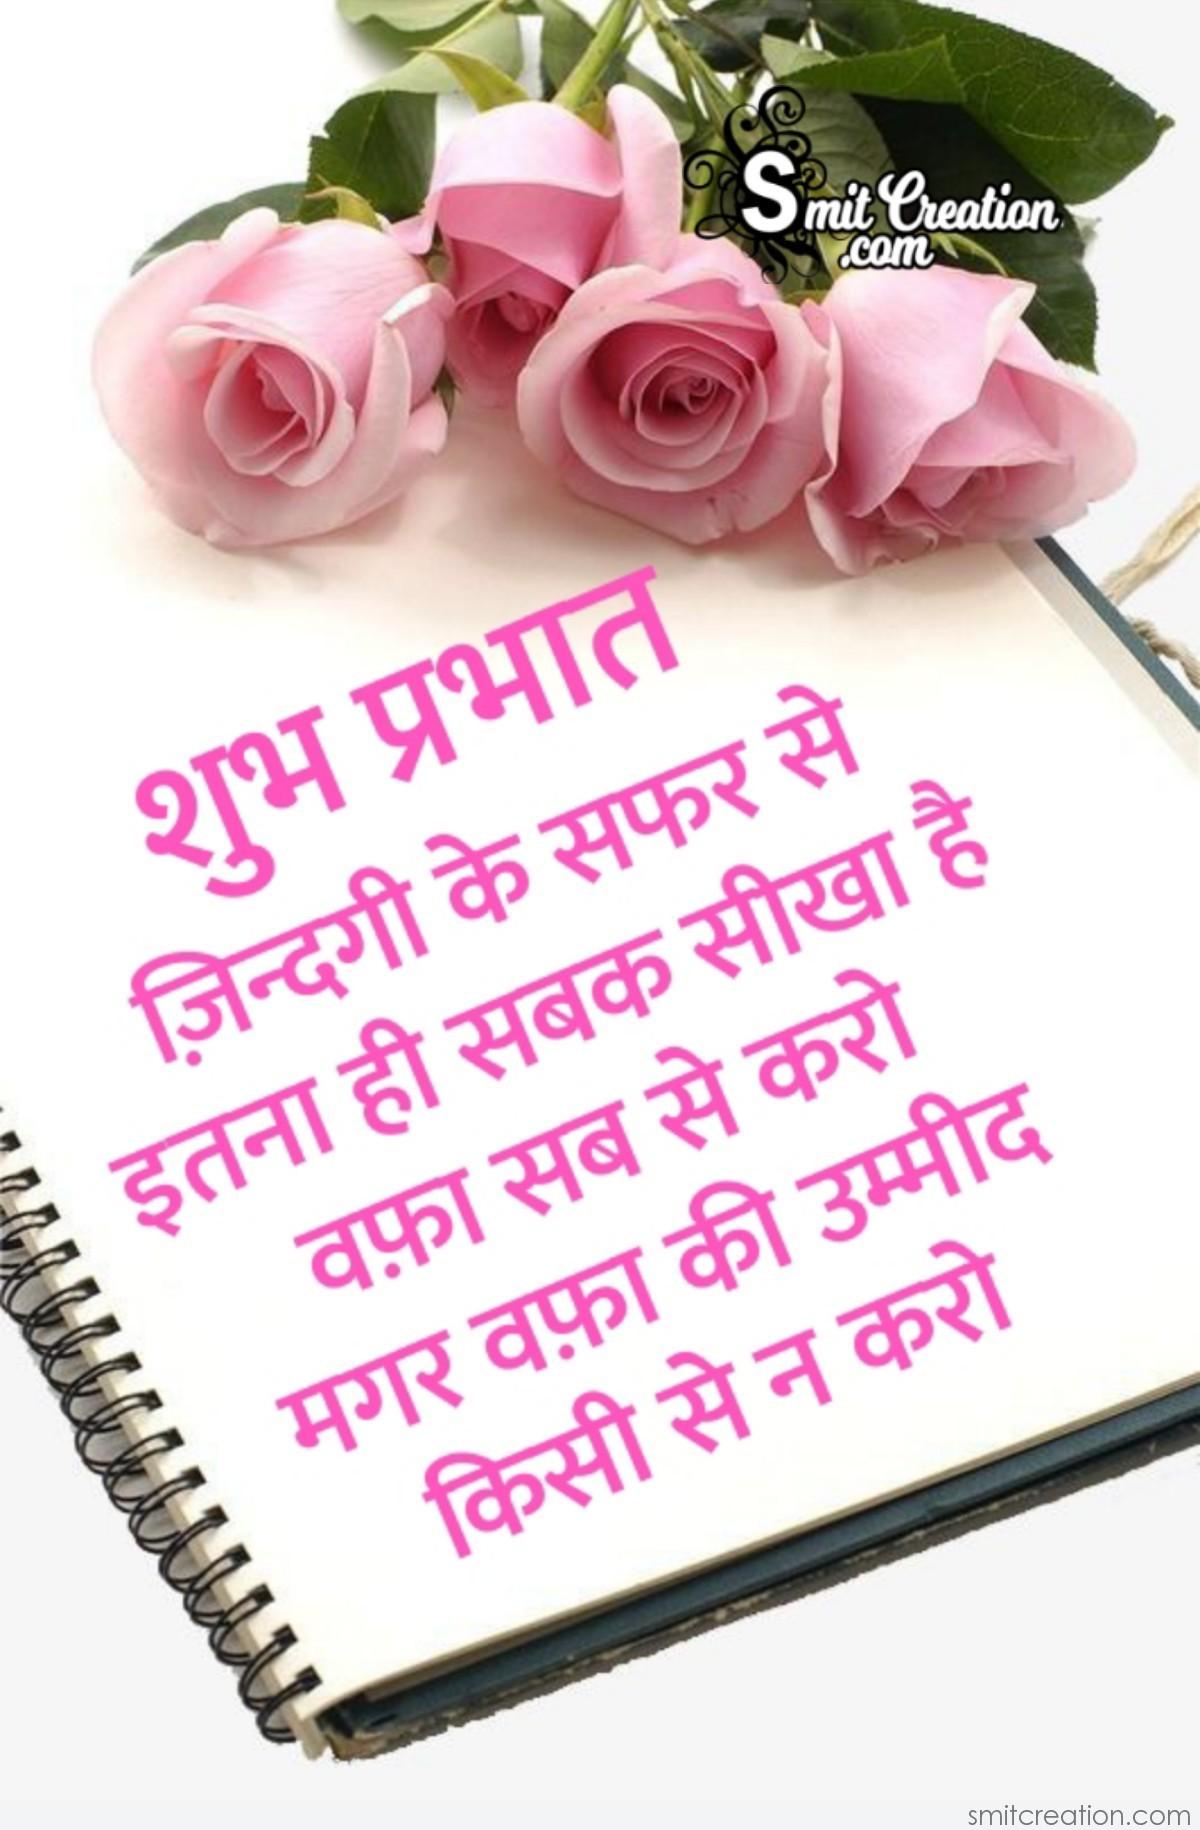 Smit Creation
.com
शुभ प्रभात
ज़िन्दगी के सफर से
इतना ही सबक सीखा है
वफ़ा सब से करो
मगर वफ़ा की उम्मीद
किसी से न करो
smitcreation.com